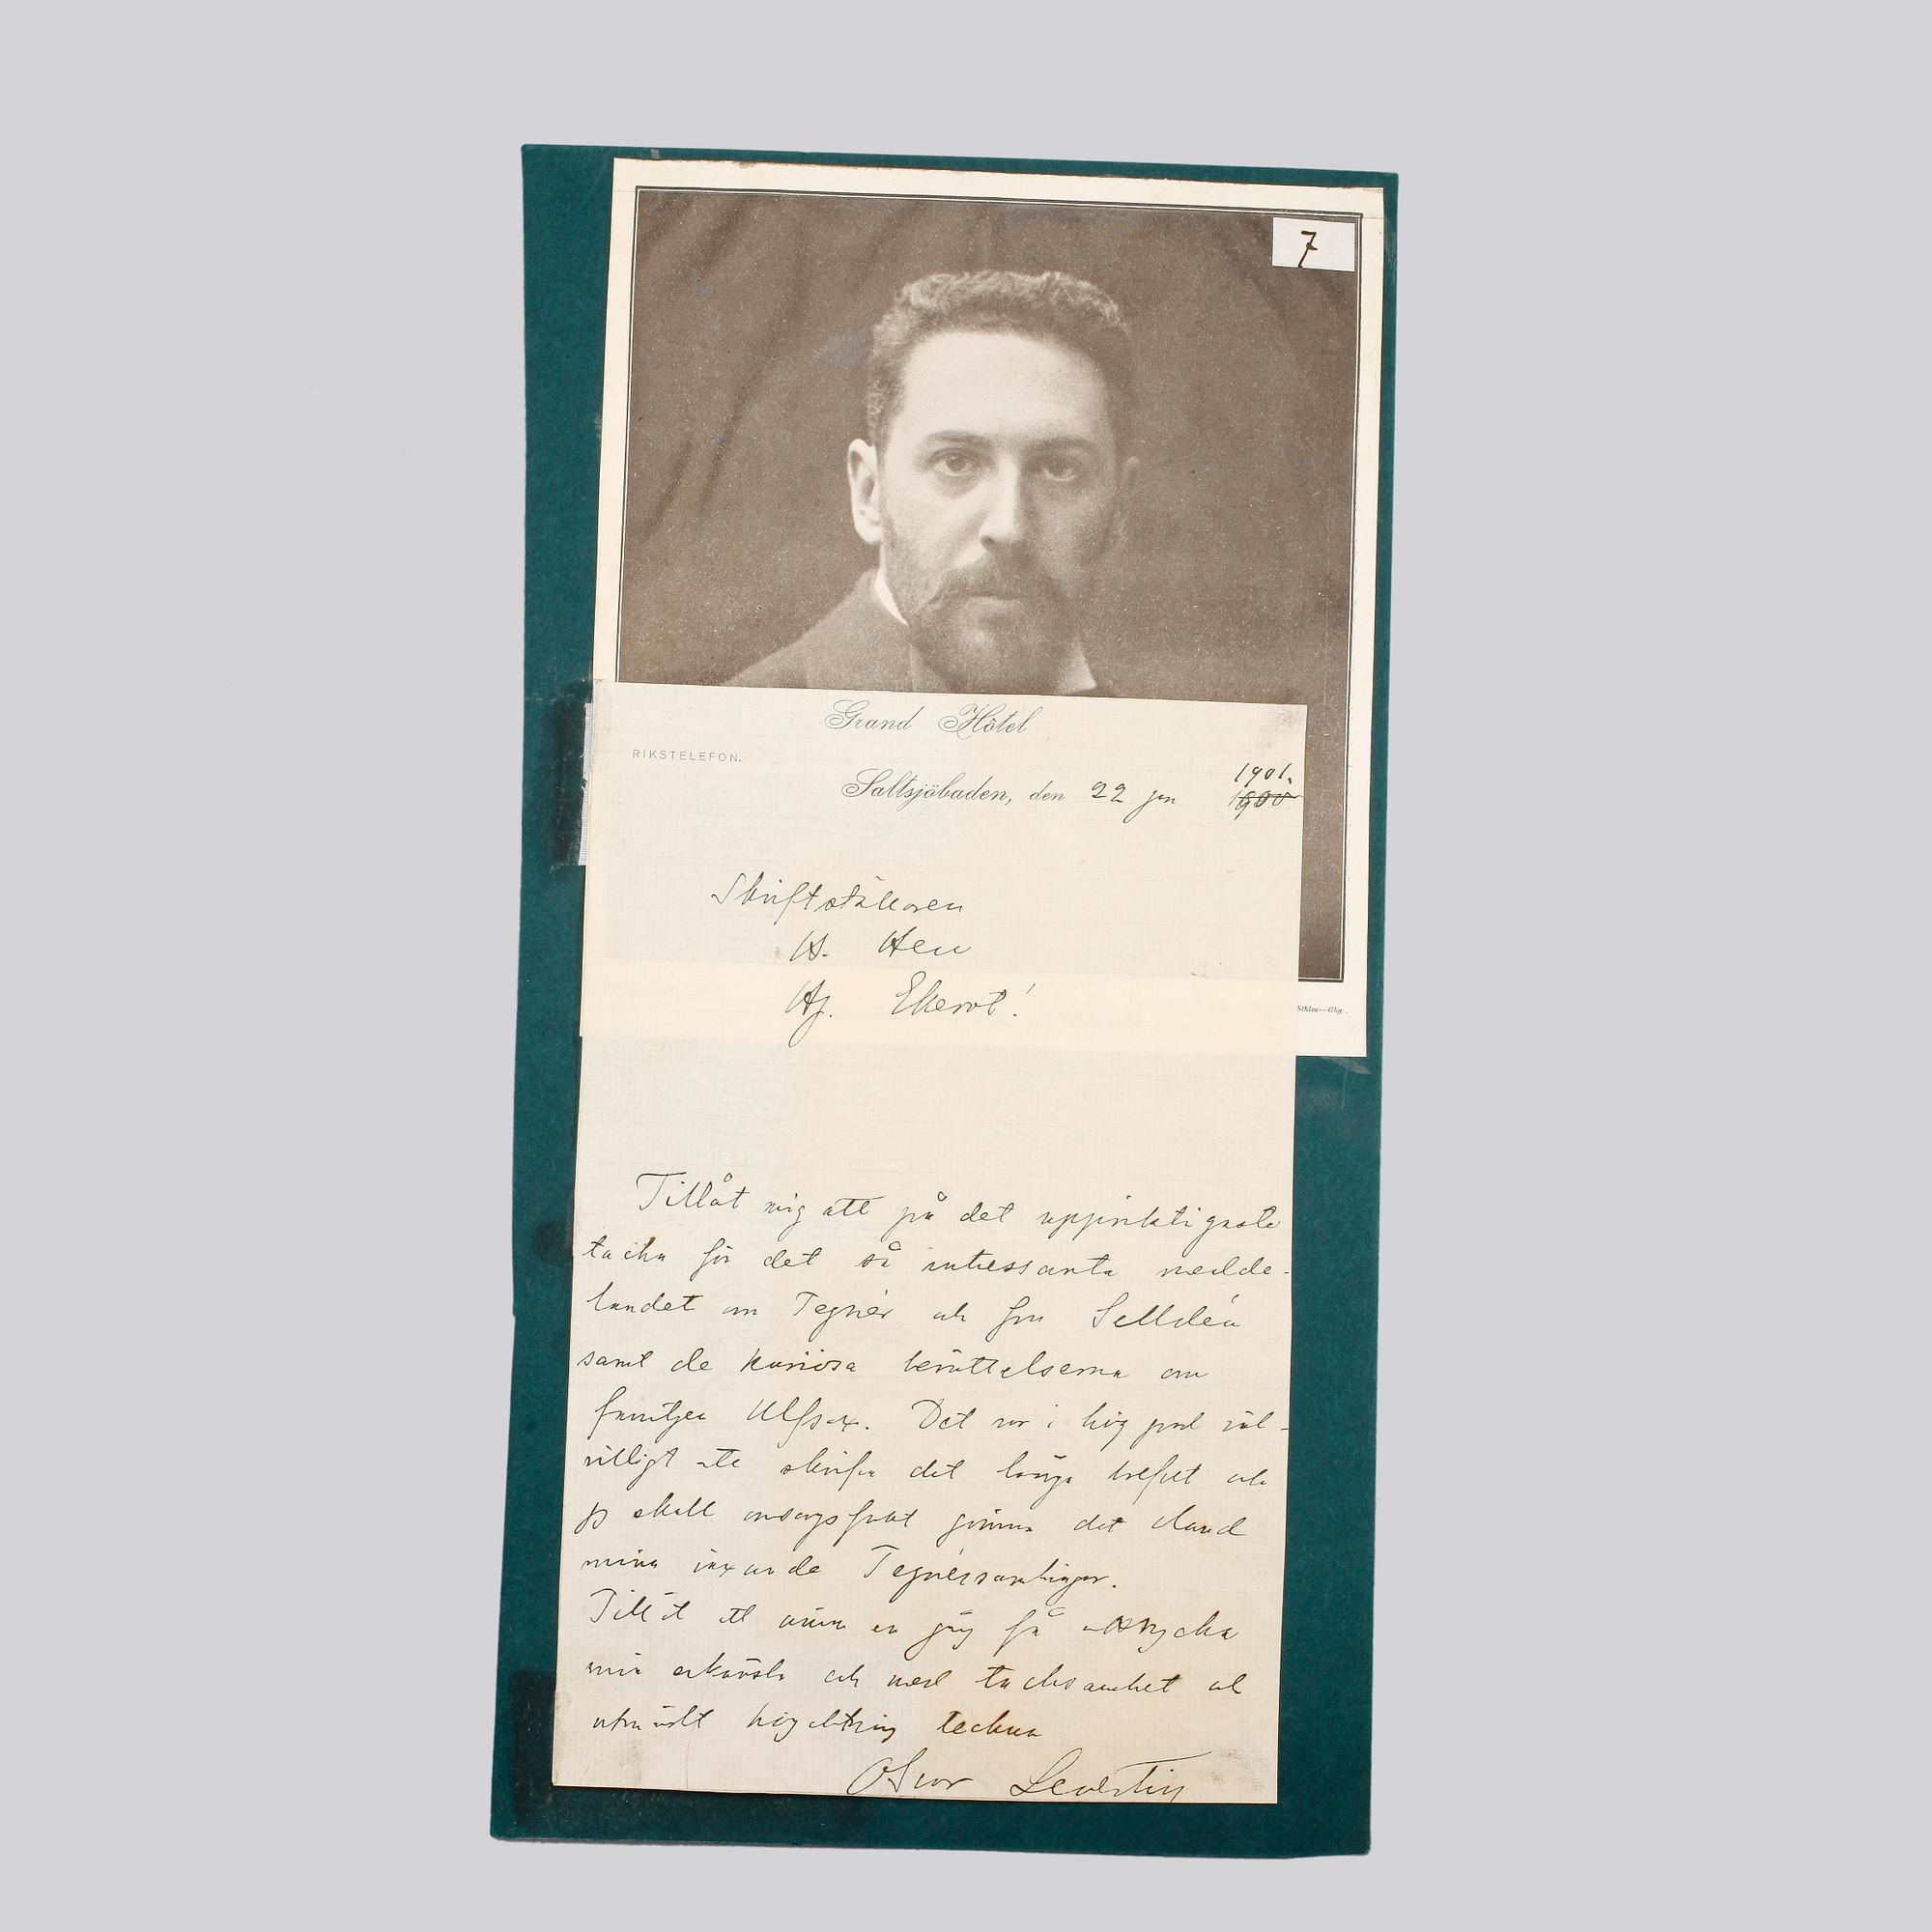 7
Grand Hôtel
RIKSTELEFON.
Saltsjöbaden, den 22 jan 1901.
1900
Skriftställaren
H. Herr
Hj. Ekerot!
Sthlm—Gbg.
Tillåt mig att på det uppriktigaste
tacka för det så intressanta medde-
landet om Tegnér och fru Selldén
samt de kuriösa berättelserna om
familjen Ulfsax. Det var i hög grad väl-
villigt att skrifva det långa brefvet och
jag skall omsorgsfullt gömma det bland
mina växande Tegnérsamlingar.
Tillåt att ännu en gång få uttrycka
min erkänsla och med tacksamhet och
utmärkt högaktning teckna
Oscar Levertin